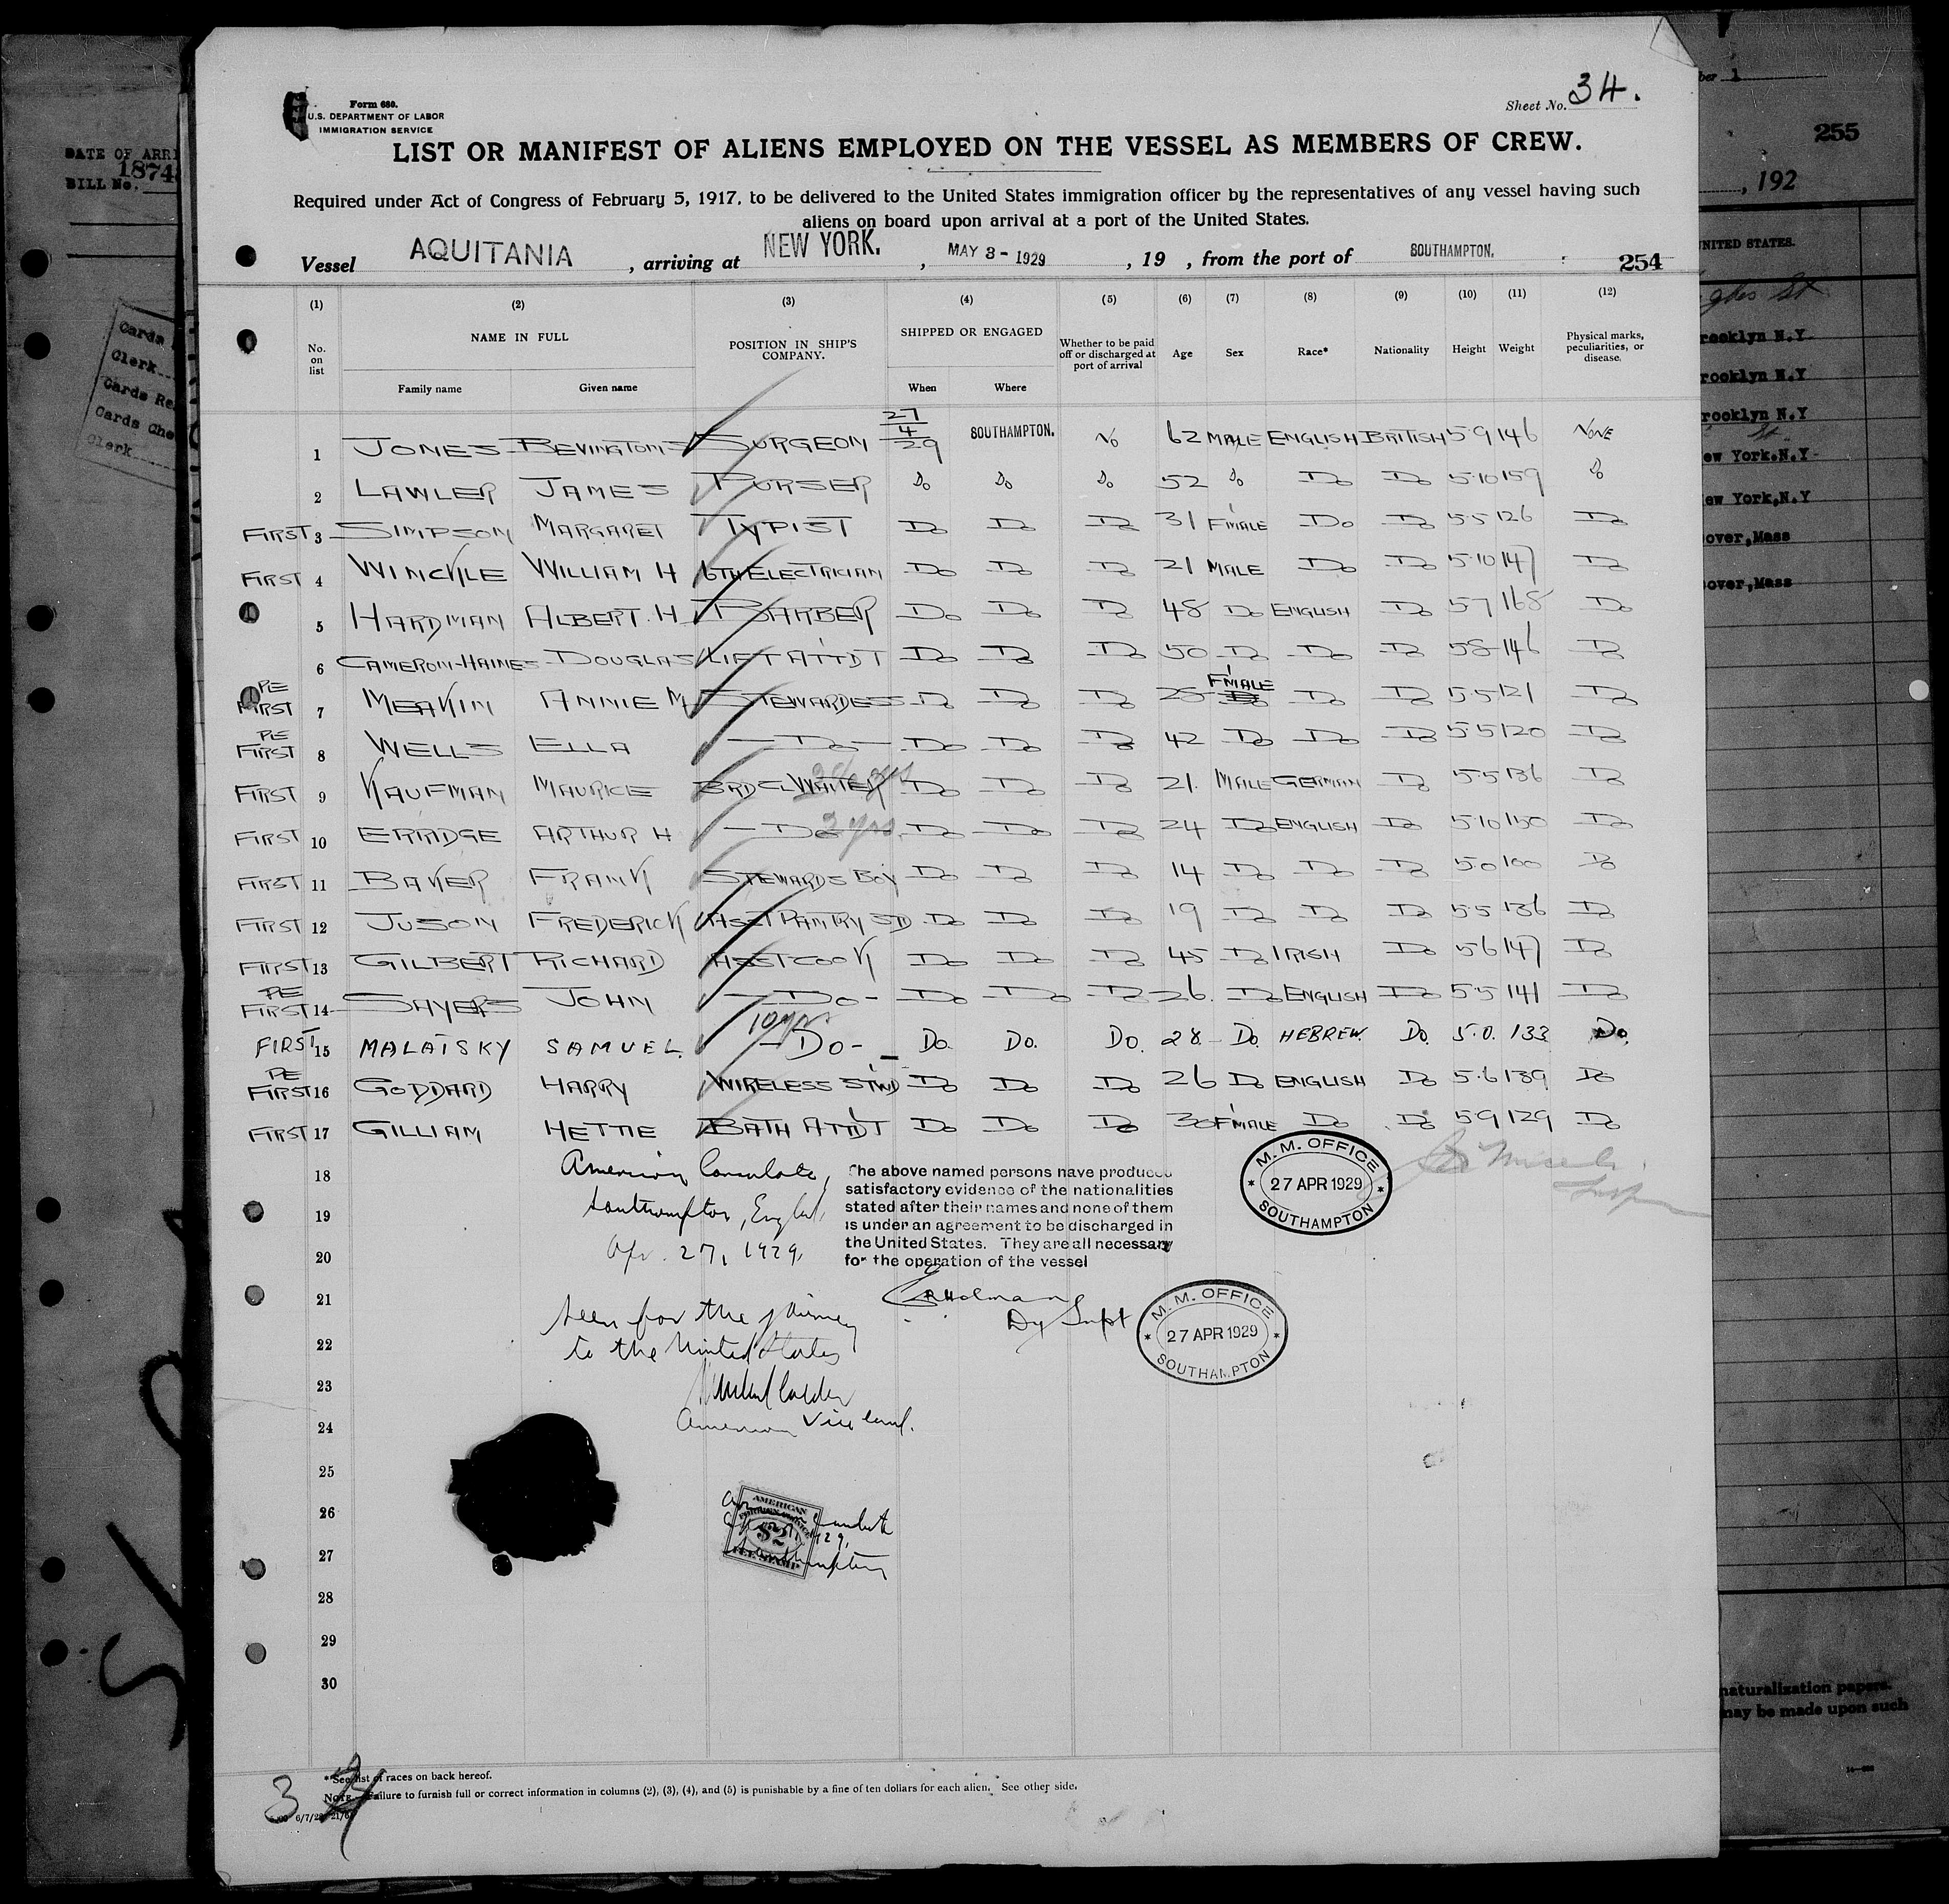 Form 680.
U.S. DEPARTMENT OF LABOR
IMMIGRATION SERVICE
Sheet No. 34.
LIST OR MANIFEST OF ALIENS EMPLOYED ON THE VESSEL AS MEMBERS OF CREW.
Required under Act of Congress of February 5, 1917, to be delivered to the United States immigration officer by the representatives of any vessel having such
aliens on board upon arrival at a port of the United States.
Vessel AQUITANIA, arriving at NEW YORK., MAY 3 - 1929, 19 , from the port of SOUTHAMPTON. 254
(1) (2) (3) (4) (5) (6) (7) (8) (9) (10) (11) (12)
No. on list NAME IN FULL POSITION IN SHIP'S COMPANY. SHIPPED OR ENGAGED Whether to be paid off or discharged at port of arrival Age Sex Race* Nationality Height Weight Physical marks, peculiarities, or disease.
Family name Given name When Where
1 JONES BEVINGTON S SURGEON 27/4/29 SOUTHAMPTON. NO 62 MALE ENGLISH BRITISH 5 9 146 NONE
2 LAWLER JAMES PURSER Do Do Do 52 Do Do Do 5·10 159 Do
FIRST 3 SIMPSON MARGARET TYPIST Do Do Do 31 F'MALE Do Do 5·5 126 Do
FIRST 4 WINCKLE WILLIAM H 6TH ELECTRICIAN Do Do Do 21 MALE Do Do 5·10 147 Do
5 HARDMAN ALBERT. H BARBER Do Do Do 48 Do ENGLISH Do 5 7 168 Do
6 CAMERON-HAINES DOUGLAS LIFT ATT'DT Do Do Do 50 Do Do Do 5 8 146 Do
PE FIRST 7 MEAKIN ANNIE M STEWARDESS Do Do Do 25 F'MALE Do Do 5·5 121 Do
PE FIRST 8 WELLS ELLA - Do - Do Do Do 42 Do Do Do 5·5 120 Do
FIRST 9 KAUFMAN MAURICE 3RD CL WAITER Do Do Do 21. MALE GERMAN Do 5·5 136 Do
FIRST 10 ERRIDGE ARTHUR H - Do 3 yrs. Do Do Do 24 Do ENGLISH Do 5·10 150 Do
FIRST 11 BAKER FRANK STEWARDS BOY Do Do Do 14 Do Do Do 5·0 100 Do
FIRST 12 JUSON FREDERICK ASST PANTRY STD Do Do Do 19 Do Do Do 5·5 136 Do
FIRST 13 GILBERT RICHARD ASST COOK Do Do Do 45 Do IRISH Do 5 6 147 Do
PE FIRST 14 SAYERS JOHN - Do - Do Do Do 26. Do ENGLISH Do 5·5 141 Do
FIRST 15 MALATSKY SAMUEL. 10 yrs - Do - Do. Do. Do. 28 Do. HEBREW. Do. 5.0. 133 Do.
PE FIRST 16 GODDARD HARRY WIRELESS ST'WD Do Do Do 26 Do ENGLISH Do 5·6 139 Do
FIRST 17 GILLIAM HETTIE BATH ATT'DT Do Do Do 30 F'MALE Do Do 5 9 129 Do
18
19
20
21
22
23
24
25
26
27
28
29
30
American Consulate,
Southampton, England,
Apr. 27, 1929,
The above named persons have produced
satisfactory evidence of the nationalities
stated after their names and none of them
is under an agreement to be discharged in
the United States. They are all necessary
for the operation of the vessel
Holman
Dy Supt
M. M. OFFICE
* 27 APR 1929 *
SOUTHAMPTON
M. M. OFFICE
* 27 APR 1929 *
SOUTHAMPTON
Seen for the journey
to the United States
American Vice Consul.
AMERICAN
$2
FEE STAMP
* See list of races on back hereof.
NOTE.—Failure to furnish full or correct information in columns (2), (3), (4), and (5) is punishable by a fine of ten dollars for each alien. See other side.
DATE OF ARRI
BILL No.
Cards
Clerk
Cards Re
Cards Che
Clerk
255
, 192
UNITED STATES.
rooklyn N.Y.
rooklyn N.Y
rooklyn N.Y
ew York.N.Y-
ew York,N.Y
over,Mass
over,Mass
naturalization papers.
may be made upon such